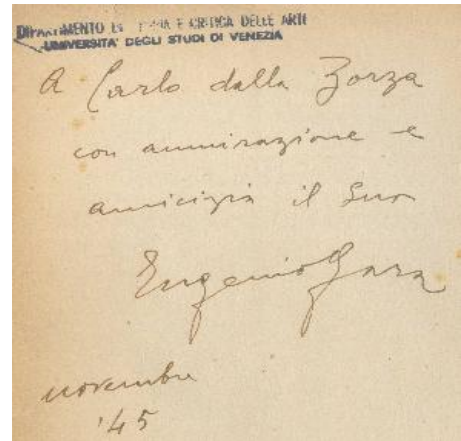 DIPARTIMENTO DI STORIA E CRITICA DELLE ARTI
UNIVERSITA' DEGLI STUDI DI VENEZIA
A Carlo dalla Zorza
con ammirazione e
amicizia il Suo
Eugenio Gara
novembre
'45